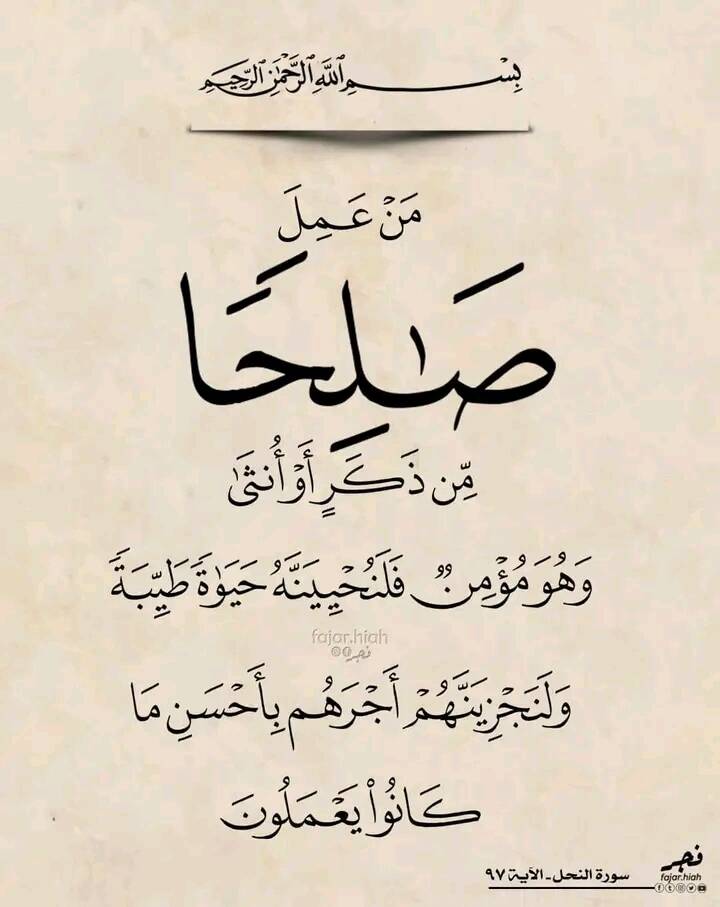 بِسْمِ ٱللَّهِ ٱلرَّحْمَٰنِ ٱلرَّحِيمِ
مَنْ عَمِلَ
صَٰلِحًا
مِّن ذَكَرٍ أَوْ أُنثَىٰ
وَهُوَ مُؤْمِنٌ فَلَنُحْيِيَنَّهُۥ حَيَوٰةً طَيِّبَةً
fajar.hiah
فجر
وَلَنَجْزِيَنَّهُمْ أَجْرَهُم بِأَحْسَنِ مَا
كَانُوا۟ يَعْمَلُونَ
فجر
fajar.hiah
سورة النحل - الآية ٩٧